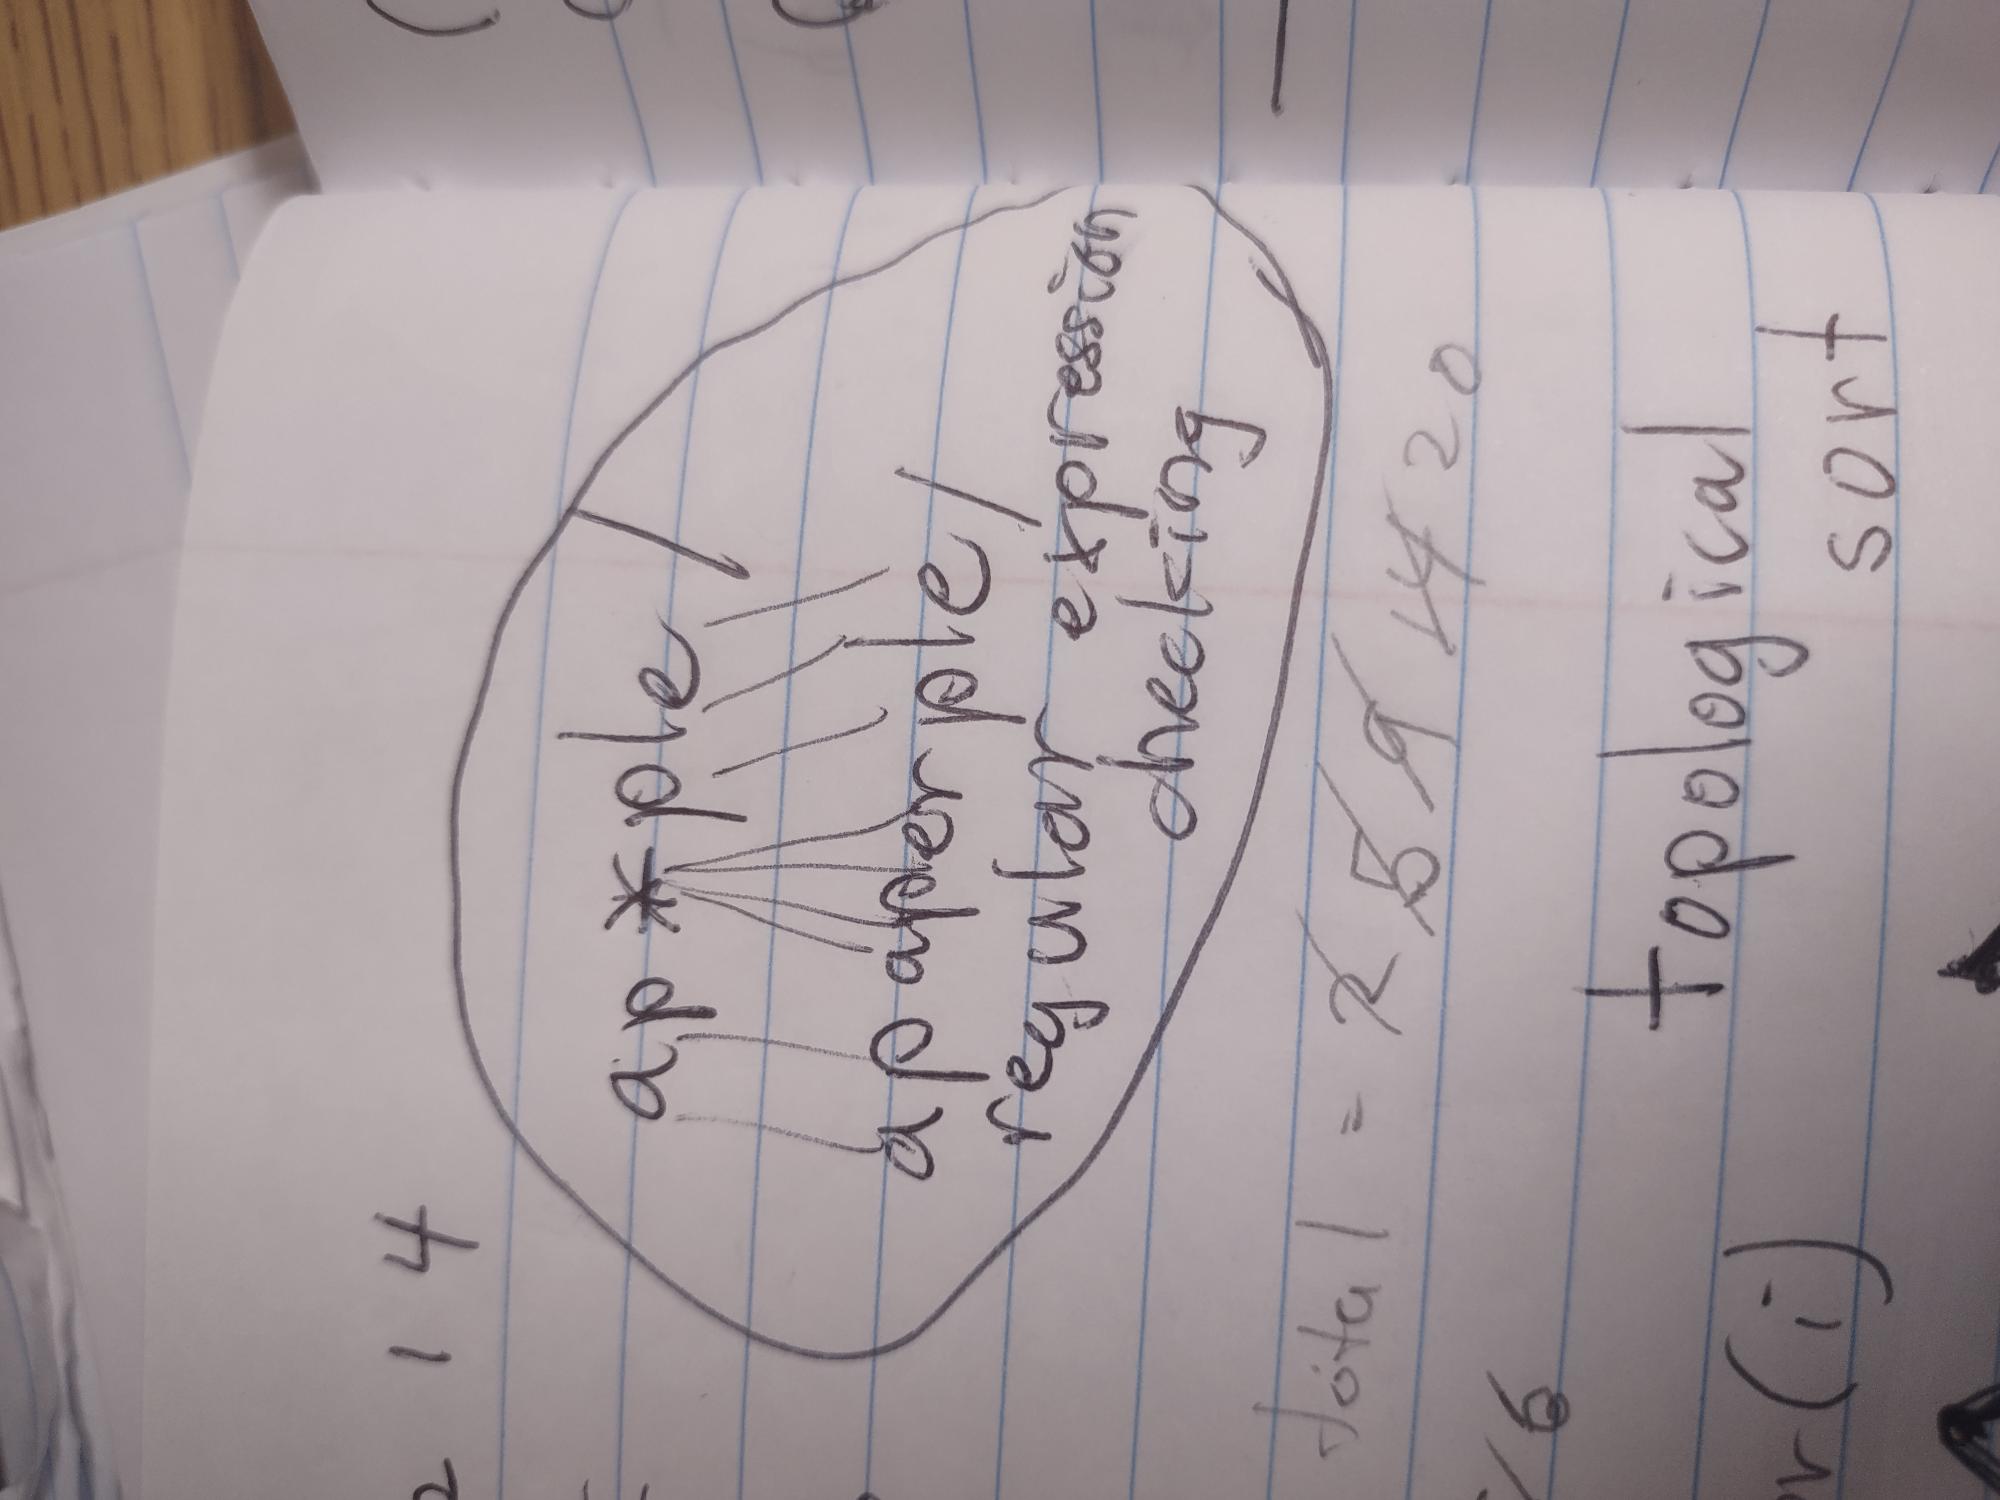 2 1 4
ap*ple/
apaperple/
regular expression
checking
total = 2 5 9 14 20
6
topological
r(i)
sort